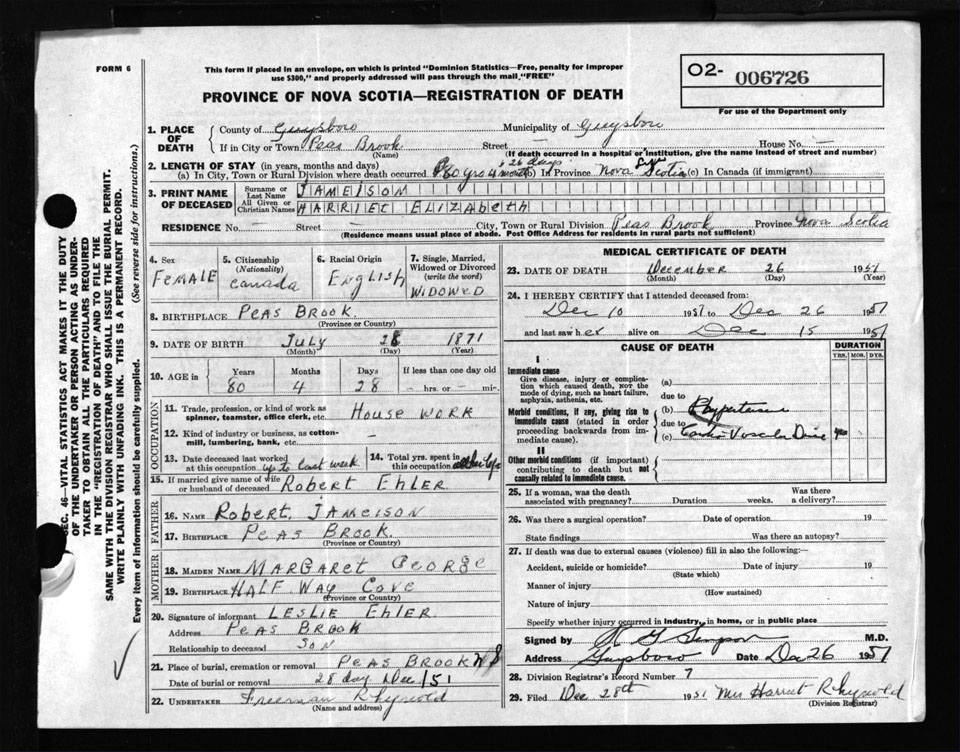 FORM 6
This form if placed in an envelope, on which is printed "Dominion Statistics—Free, penalty for improper
use $300," and properly addressed will pass through the mail "FREE"
PROVINCE OF NOVA SCOTIA—REGISTRATION OF DEATH
O2- 006726
For use of the Department only
1. PLACE OF DEATH
County of Guysboro Municipality of Guysboro
If in City or Town Peas Brook Street — House No. —
(Name) (If death occurred in a hospital or institution, give the name instead of street and number)
2. LENGTH OF STAY (in years, months and days)
(a) In City, Town or Rural Division where death occurred 80 yrs 4 months 28 days (b) In Province Nova Scotia (c) In Canada (if immigrant)
3. PRINT NAME OF DECEASED
Surname or Last Name JAMEISON
All Given or Christian Names HARRIET ELIZAbeth
RESIDENCE No. — Street — City, Town or Rural Division Peas Brook Province Nova Scotia
(Residence means usual place of abode. Post Office Address for residents in rural parts not sufficient)
4. Sex
FEMALE
5. Citizenship
(Nationality)
Canada
6. Racial Origin
English
7. Single, Married,
Widowed or Divorced
(write the word)
WIDOWED
8. BIRTHPLACE PEAS BROOK.
(Province or Country)
9. DATE OF BIRTH July 28 1871
(Month) (Day) (Year)
10. AGE in
Years Months Days If less than one day old
80 4 28 — hrs. or — min.
OCCUPATION
11. Trade, profession, or kind of work as
spinner, teamster, office clerk, etc. House work
12. Kind of industry or business, as cotton-
mill, lumbering, bank, etc. —
13. Date deceased last worked
at this occupation up to last week
14. Total yrs. spent in
this occupation all her life
15. If married give name of wife
or husband of deceased Robert Ehler
FATHER
16. NAME Robert Jameison
17. BIRTHPLACE PEAS BROOK.
(Province or Country)
MOTHER
18. MAIDEN NAME MARGARET GEORGE
19. BIRTHPLACE HALF WAY COVE
(Province or Country)
20. Signature of informant LESLIE EhlER
Address PEAS BROOK
Relationship to deceased SON
21. Place of burial, cremation or removal PEAS BROOK NS
Date of burial or removal 28 day Dec /51
22. UNDERTAKER Freeman Rhynold
(Name and address)
MEDICAL CERTIFICATE OF DEATH
23. DATE OF DEATH December 26 1951
(Month) (Day) (Year)
24. I HEREBY CERTIFY that I attended deceased from:
Dec 10 1951 to Dec 26 1951
and last saw her alive on Dec 15 1951
CAUSE OF DEATH
DURATION
YRS. MOS. DYS.
I
Immediate cause
Give disease, injury or complica-
tion which caused death, NOT the
mode of dying, such as heart failure,
asphyxia, asthenia, etc.
(a)
due to
Morbid conditions, if any, giving rise to
immediate cause (stated in order
proceeding backwards from im-
mediate cause).
(b) Hypertensive
due to
(c) Cardio Vascular
II
Other morbid conditions (if important)
contributing to death but not
causally related to immediate cause.
25. If a woman, was the death
associated with pregnancy? Duration weeks. Was there
a delivery?
26. Was there a surgical operation? Date of operation 19
State findings Was there an autopsy?
27. If death was due to external causes (violence) fill in also the following:—
Accident, suicide or homicide? Date of injury 19
(State which)
Manner of injury
(How sustained)
Nature of injury
Specify whether injury occurred in industry, in home, or in public place
Signed by Simpson M.D.
Address Guysboro Date Dec 26 1951
28. Division Registrar's Record Number 7
29. Filed Dec 28th 1951 Mrs Harriet Rhynold
(Division Registrar)
SEC. 46—VITAL STATISTICS ACT MAKES IT THE DUTY
OF THE UNDERTAKER OR PERSON ACTING AS UNDER-
TAKER TO OBTAIN ALL THE PARTICULARS REQUIRED
IN THE "REGISTRATION OF DEATH" AND TO FILE THE
SAME WITH THE DIVISION REGISTRAR WHO SHALL ISSUE THE BURIAL PERMIT.
WRITE PLAINLY WITH UNFADING INK. THIS IS A PERMANENT RECORD.
Every item of information should be carefully supplied. (See reverse side for instructions.)